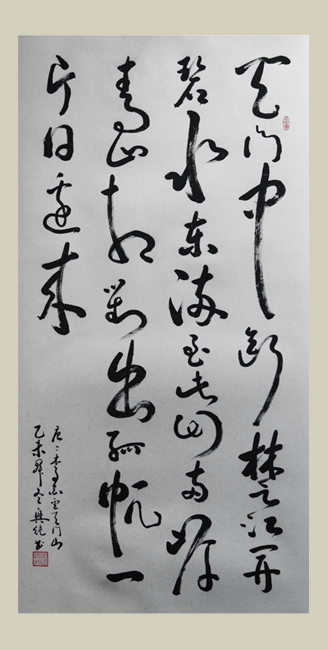 天门中断楚江开
碧水東流至此回两岸
青山相對出孤帆一
片日邊来
唐李白望天门山
乙未冬書